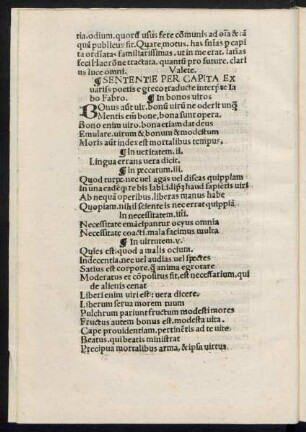 tia, odium. quorū usus fere cōmunis ad oīa & tā
quā publicus sit. Quare motus. has sn̄ias p capita
ordi tas familiarissimas. ut in me erat. latias
feci Hac rōne tractata. quantū pro future. claris
luce omni. Valete.
¶ SENTENTIE PER CAPITA EX
uariis poetis e greco traducte interp̄te Ia
bo Fabro. ¶ In bonos uiros
BOnus asīt uir. bonū uirū ne oderit unq̄
Mentis em̄ bone, bona sunt opera.
Bono enim uiro, bona etiam dat deus
Emulare. uirum & bonum & modestum
Moris aūt index est mortalibus tempus.
¶ In ueritatem. ii.
Lingua errans uera dicit.
¶ In peccatum. iii.
Quod turpe. nec uel agas uel discas quippiam
In una ead q̄ re bis labi. id haud sapientis uiri
Ab nequā operibus. libæras manus habe
Quopiam. nihil silente is nec errat quippiā
In necessitatem. iiii.
Necessitate emācipantur ocyus omnia
Necessitate coacti. mala facimus multa
¶ In uirtutem. v.
Quies est. quod a malis ocium.
Indecentia. nec uel audias uel spectes
Satius est corpore. q̄ anima egrotare
Moderatus et cōpositus sit. est necessarium. qui
de alienis cenat
Liberi enim uiri est: uera dicere.
Liberum serua morem tuum
Pulchrum pariunt fructum modesti mores
Fructus autem bonus est. modesta uita.
Cape prouidentiam. pertinētis ad te uite.
Beatus. qui beatis ministrat
Precipua mortalibus arma, & ipsa uirtus